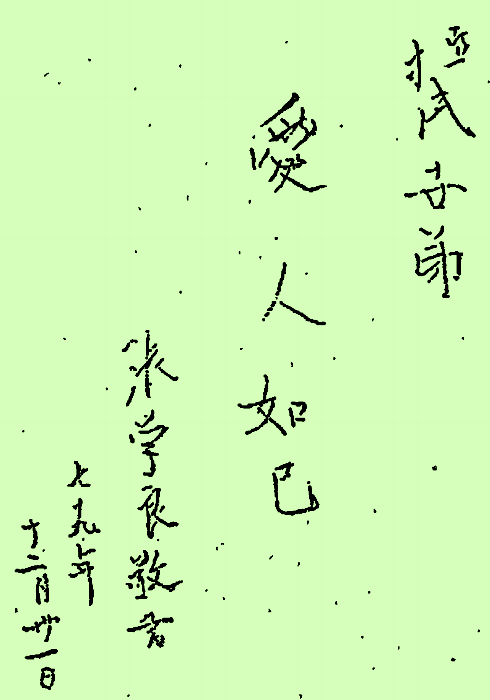 弟
愛人如己
張学良敬書
七十九年
十二月卅一日